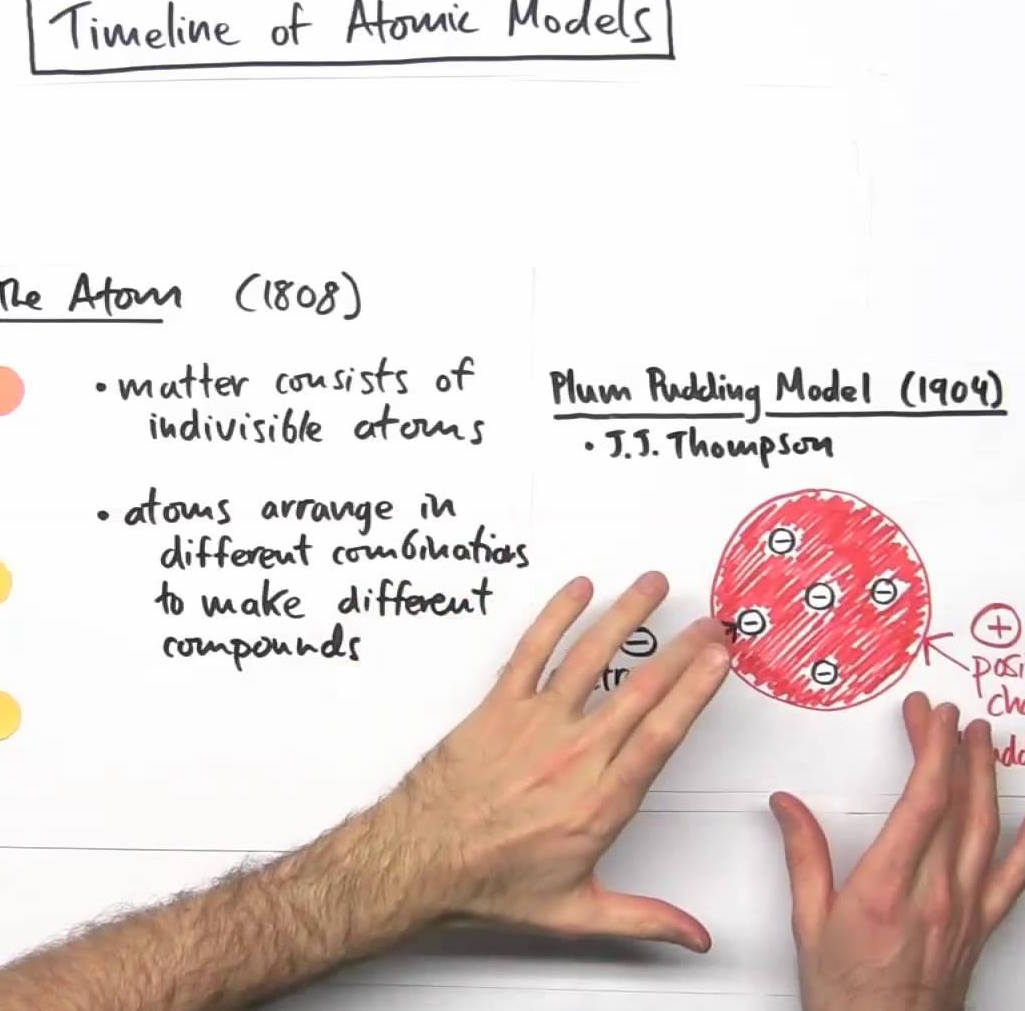 Timeline of Atomic Models
The Atom (1808)
• matter consists of
indivisible atoms
• atoms arrange in
different combinations
to make different
compounds
Plum Pudding Model (1904)
• J.J. Thompson
⊖ ⊖ ⊖ ⊖ ⊖
⊖
⊕